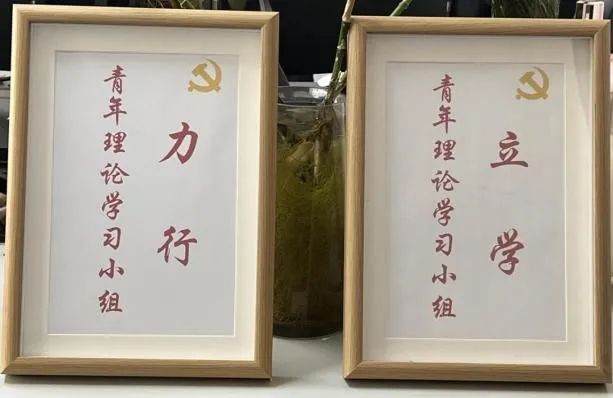 力行
青年理论学习小组
立学
青年理论学习小组